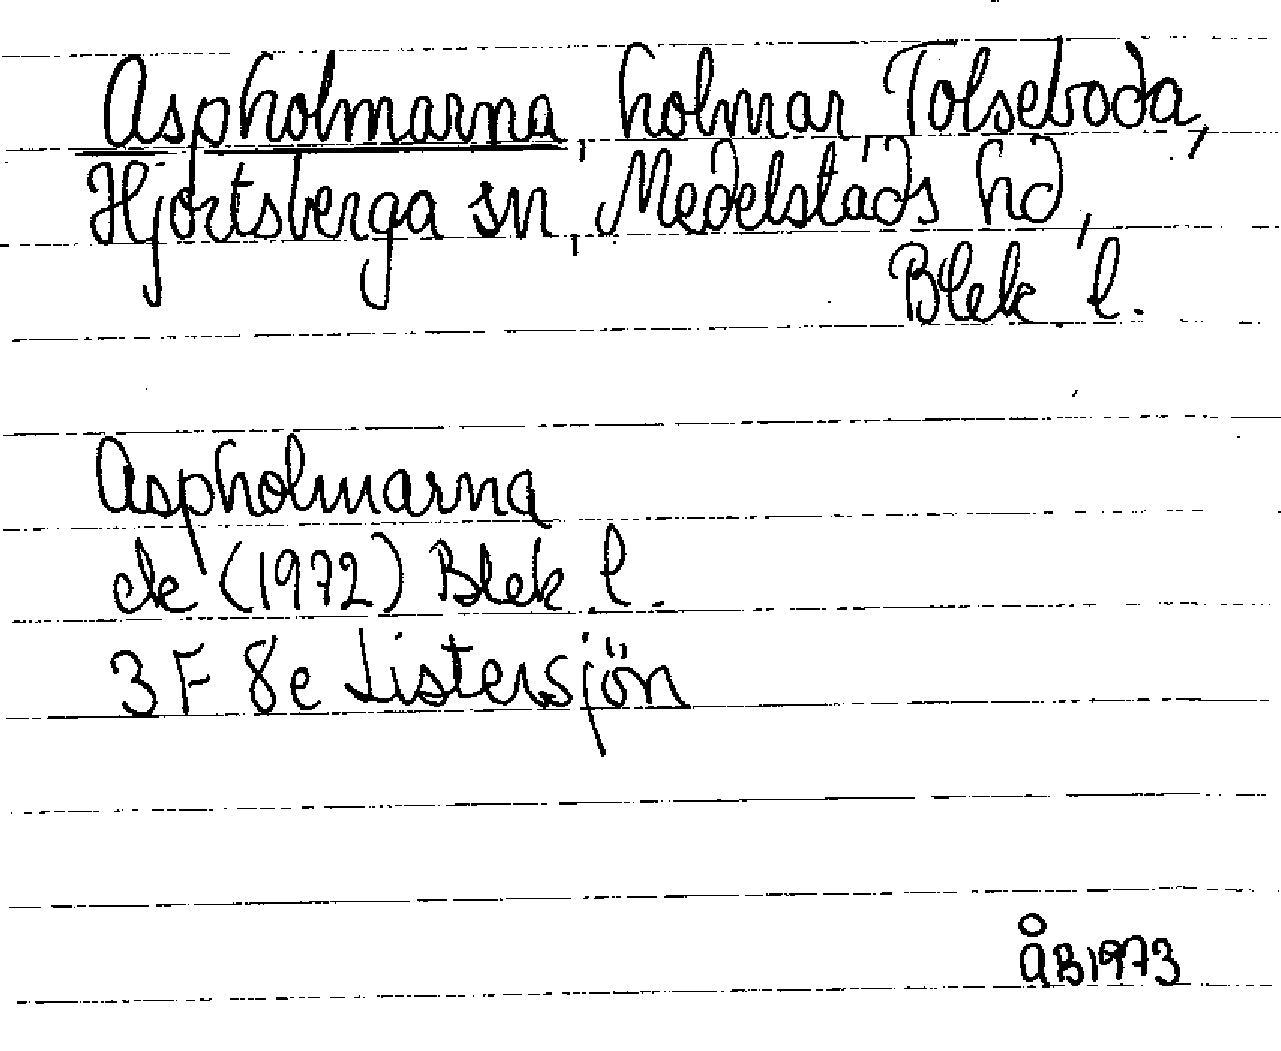 Aspholmarna, holmar Tolseboda,
Hjortsberga sn, Medelstads hd,
Blek l.
Aspholmarna
ek (1972) Blek l.
3F 8e Listersjön
ÅB1973